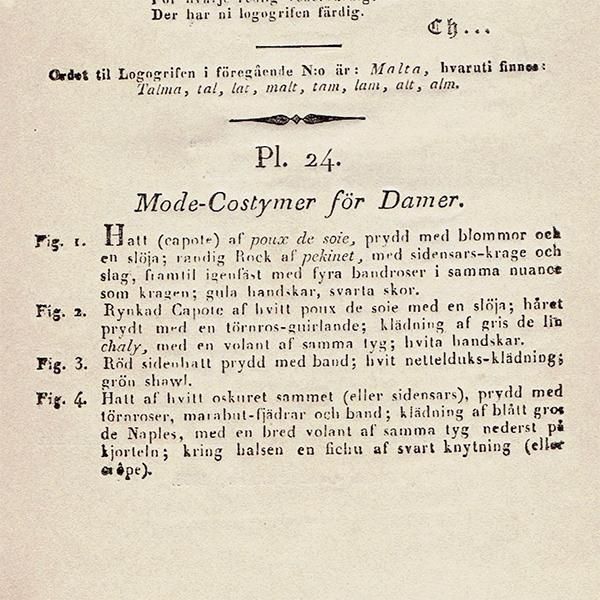 Der har ni logogrifen färdig.
Ch...
Ordet til Logogrifen i föregående N:o är: Malta, hvaruti finnes:
Talma, tal, lat, malt, tam, lam, alt, alm.
Pl. 24.
Mode-Costymer för Damer.
Fig. 1. Hatt (capote) af poux de soie, prydd med blommor och
en slöja; randig Rock af pekinet, med sidensars-krage och
slag, framtil igenfäst med fyra bandroser i samma nuance
som kragen; gula handskar, svarta skor.
Fig. 2. Rynkad Capote af hvitt poux de soie med en slöja; håret
prydt med en törnros-guirlande; klädning af gris de lin
chaly, med en volant af samma tyg; hvita handskar.
Fig. 3. Röd sidenhatt prydd med band; hvit nettelduks-klädning;
grön shawl.
Fig. 4. Hatt af hvitt oskuret sammet (eller sidensars), prydd med
törnroser, marabut-fjädrar och band; klädning af blått gros
de Naples, med en bred volant af samma tyg nederst på
kjorteln; kring halsen en fichu af svart knytning (eller
crêpe).